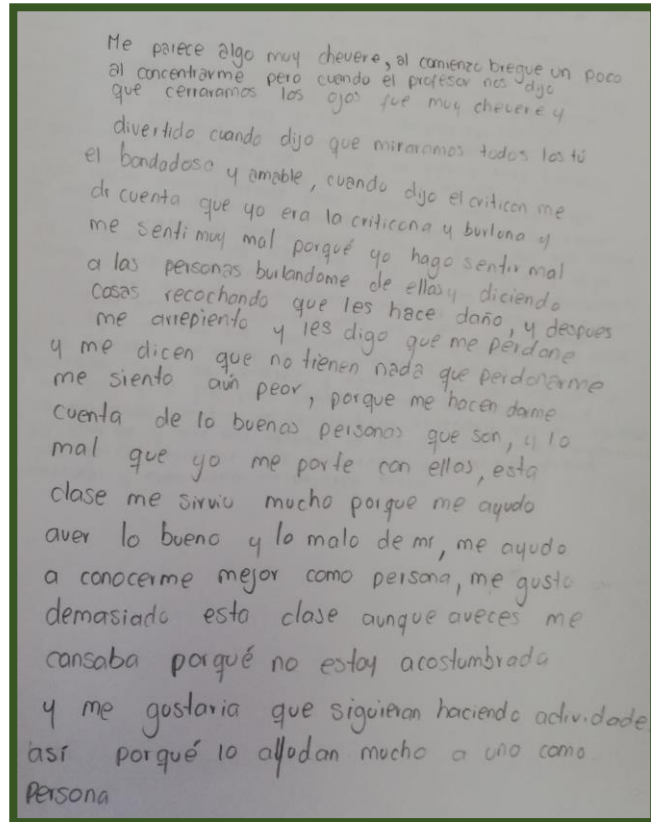 Me parece algo muy chevere, al comienzo bregue un poco
al concentrarme pero cuando el profesor nos dijo
que cerraramos los ojos fue muy chevere y
divertido cuando dijo que miraramos todos los tú
el bondadoso y amable, cuando dijo el criticon me
di cuenta que yo era la criticona y burlona y
me senti muy mal porqué yo hago sentir mal
a las personas burlandome de ellas y diciendo
cosas recochando que les hace daño, y despues
me arrepiento y les digo que me perdone
y me dicen que no tienen nada que perdonarme
me siento aún peor, porque me hacen darme
cuenta de lo buenas personas que son, y lo
mal que yo me porte con ellos, esta
clase me sirvio mucho porque me ayudo
aver lo bueno y lo malo de mi, me ayudo
a conocerme mejor como persona, me gusto
demasiado esta clase aunque aveces me
cansaba porqué no estoy acostumbrada
y me gustaria que siguieran haciendo actividade
así porqué lo ayudan mucho a uno como
persona